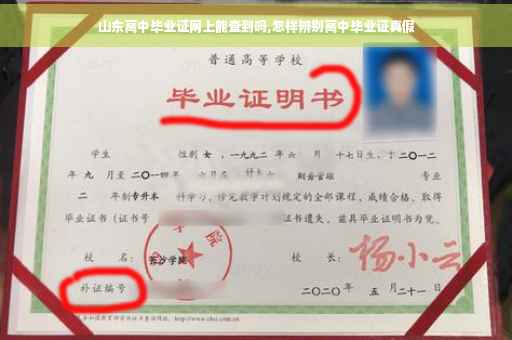 山东高中毕业证网上能查到吗,怎样辨别高中毕业证真假
普通高等学校
毕业证明书
学生 性别 女，一九九二年 六 月 十七日生，于 二〇一二
年 九 月至 二〇一四 年 六月在 财务管理 专业
二 年制 专升本 科学习，修完教学计划规定的全部课程，成绩合格，取得
毕业证书（证书号 证书遗失，兹具毕业证明书为凭。
校 名： 长沙学院 校 长： 杨小云
补证编号 二〇二〇年 五 月 二十一日